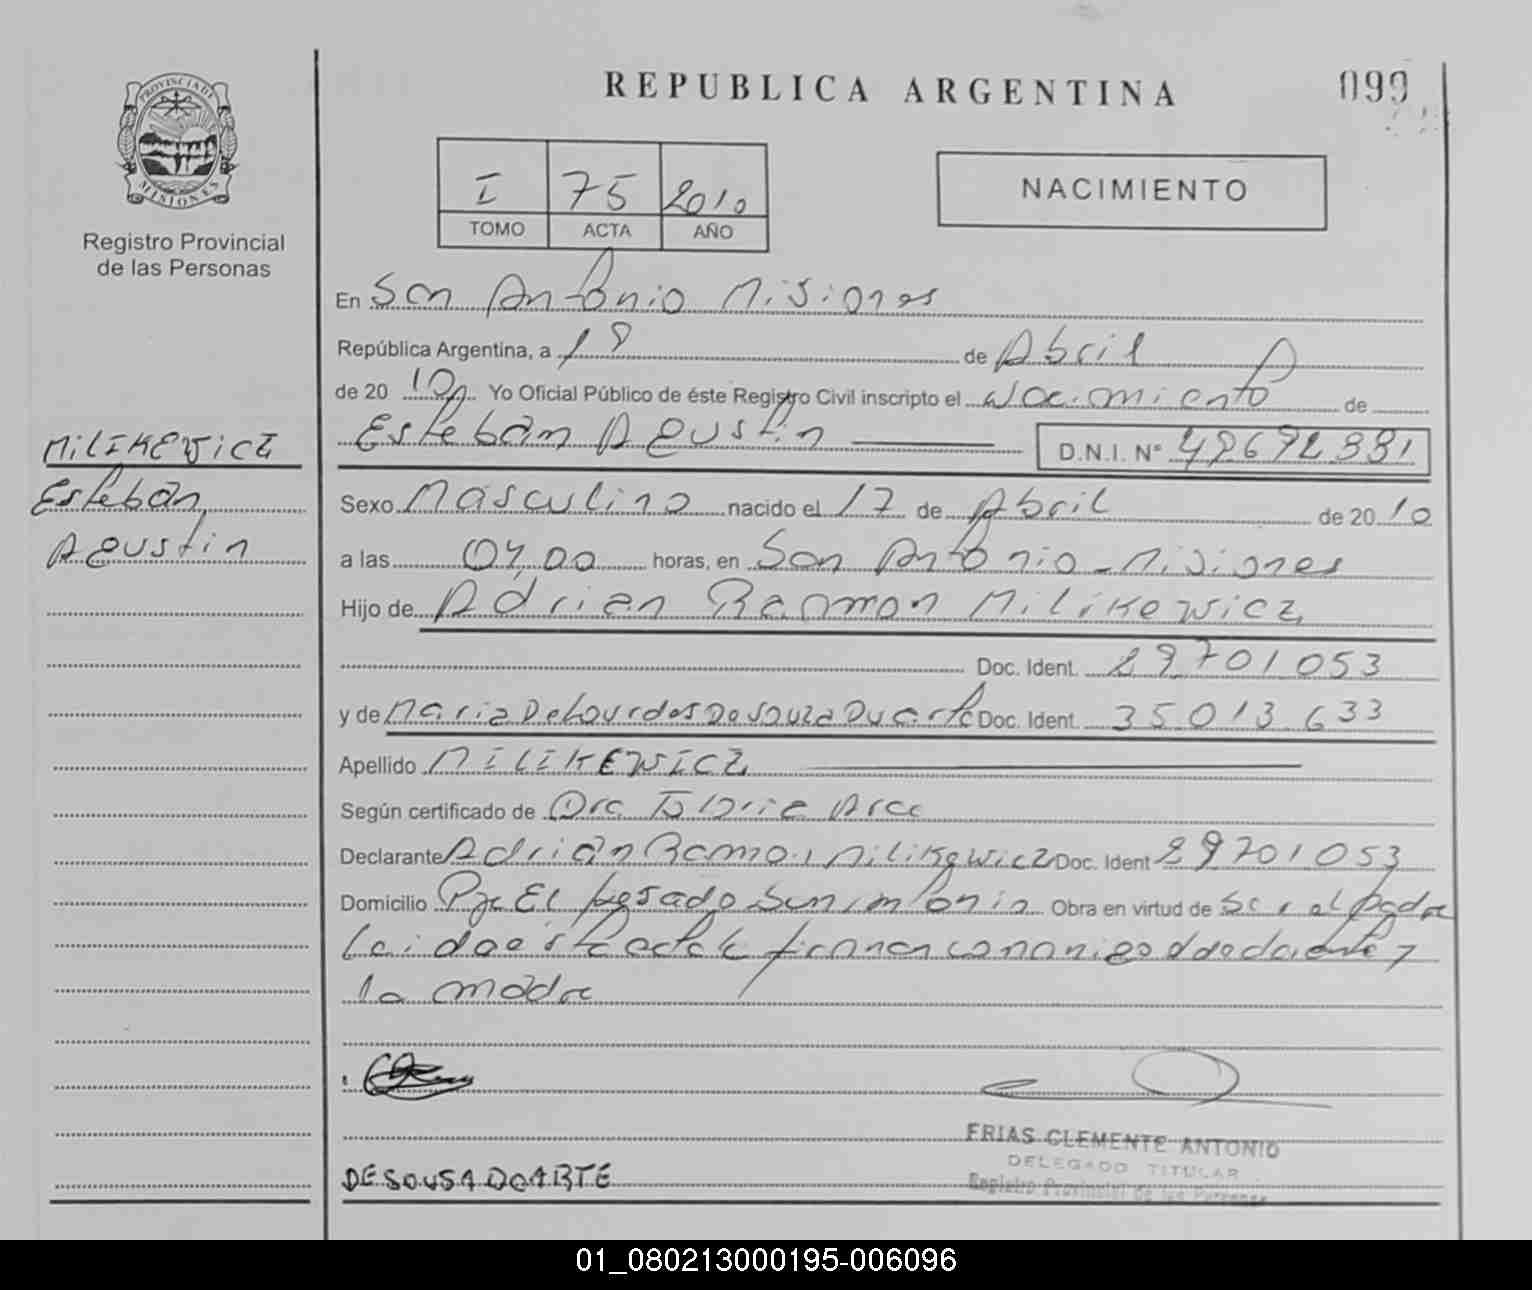 PROVINCIA DE
MISIONES
Registro Provincial
de las Personas
REPUBLICA ARGENTINA
099
I 75 2010
TOMO ACTA AÑO
NACIMIENTO
En San Antonio Misiones
República Argentina, a 18 de Abril
de 20 10 Yo Oficial Público de éste Registro Civil inscripto el Nacimiento de
Esteban Agustin D.N.I. Nº
MILIKEWICZ
Esteban
Agustin
Sexo Masculino nacido el 17 de Abril de 20 10
a las 04,00 horas, en San Antonio - Misiones
Hijo de Adrian Ramon Milikewicz
Doc. Ident. 29701053
y de Maria De Lourdes De Souza Duarte Doc. Ident. 35013633
Apellido MILIKEWICZ
Según certificado de Dra Arce
Declarante Adrián Ramon Milikewicz Doc. Ident 29701053
Domicilio Pje El San Antonio Obra en virtud de Ser el padre
Leida esta acta la firman conmigo y
la madre
FRIAS CLEMENTE ANTONIO
DELEGADO TITULAR
Registro Provincial de las Personas
DE SOUSA DOARTE
01_080213000195-006096